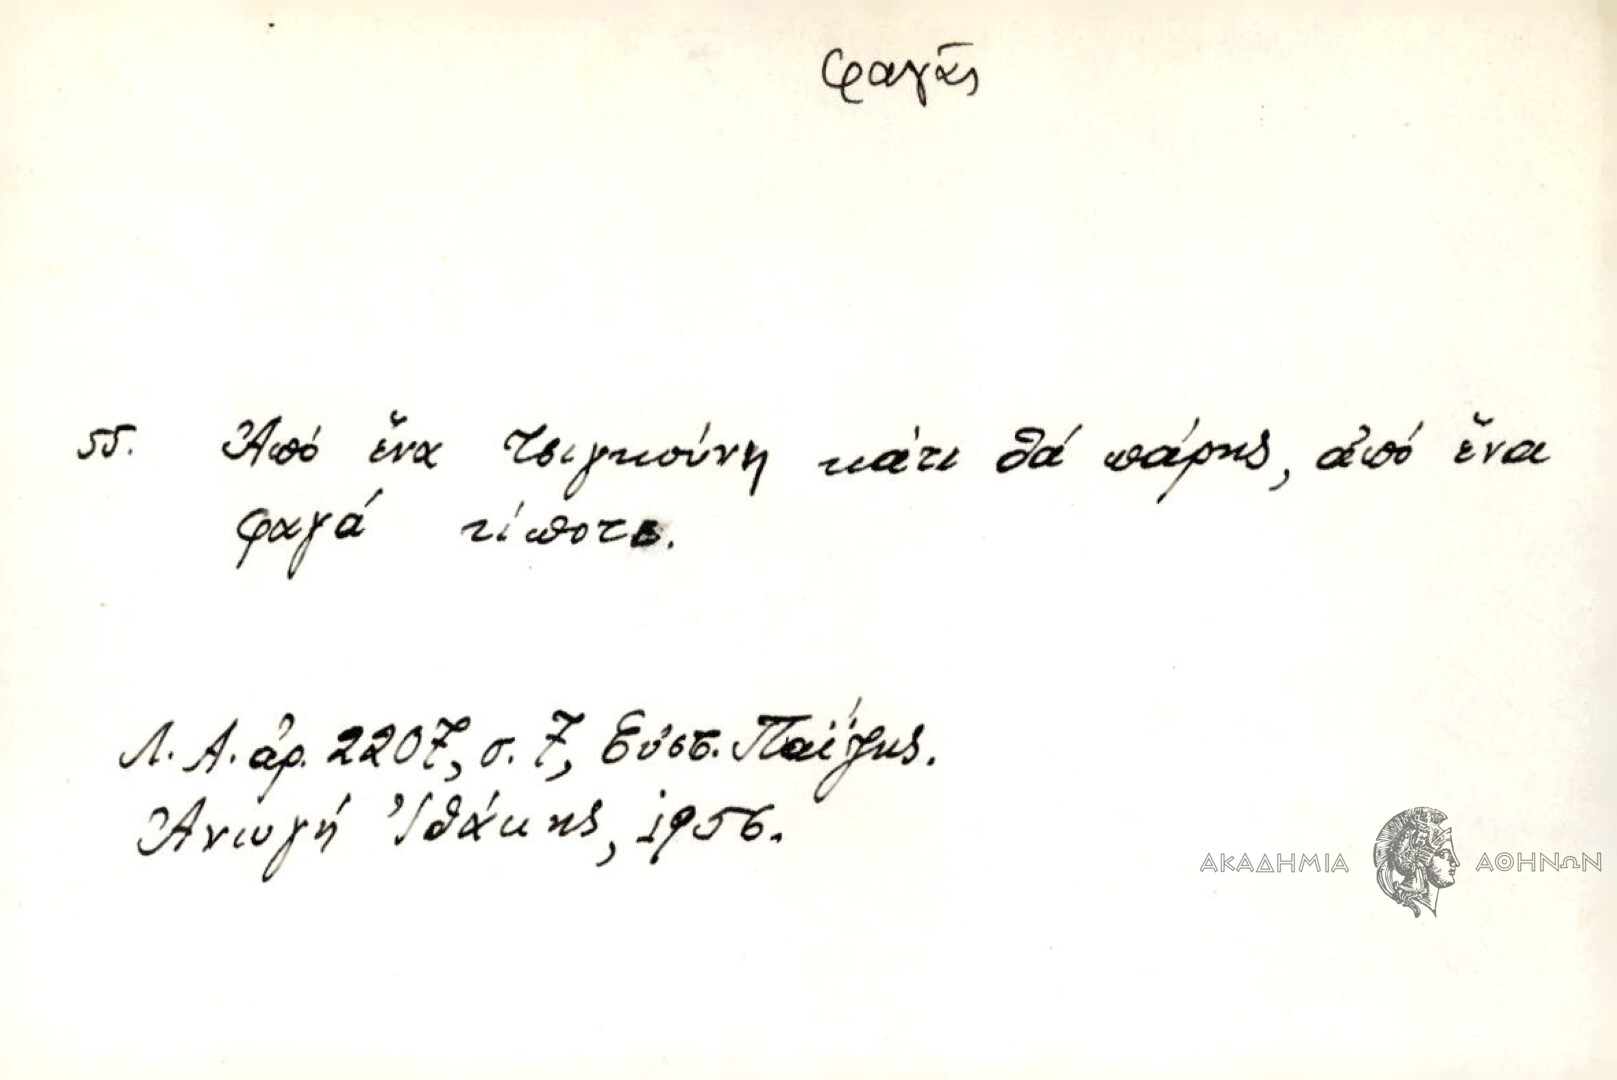 φαγᾶς
55. Ἀπό ἕνα τσιγκούνη κάτι θά πάρῃς, ἀπό ἕνα
φαγά τίποτε.
Λ. Α. ἀρ. 2207, σ. 7, Εὐστ. Παΐζης.
Ἀνωγή Ἰθάκης, 1956.
ΑΚΑΔΗΜΙΑ ΑΘΗΝΩΝ